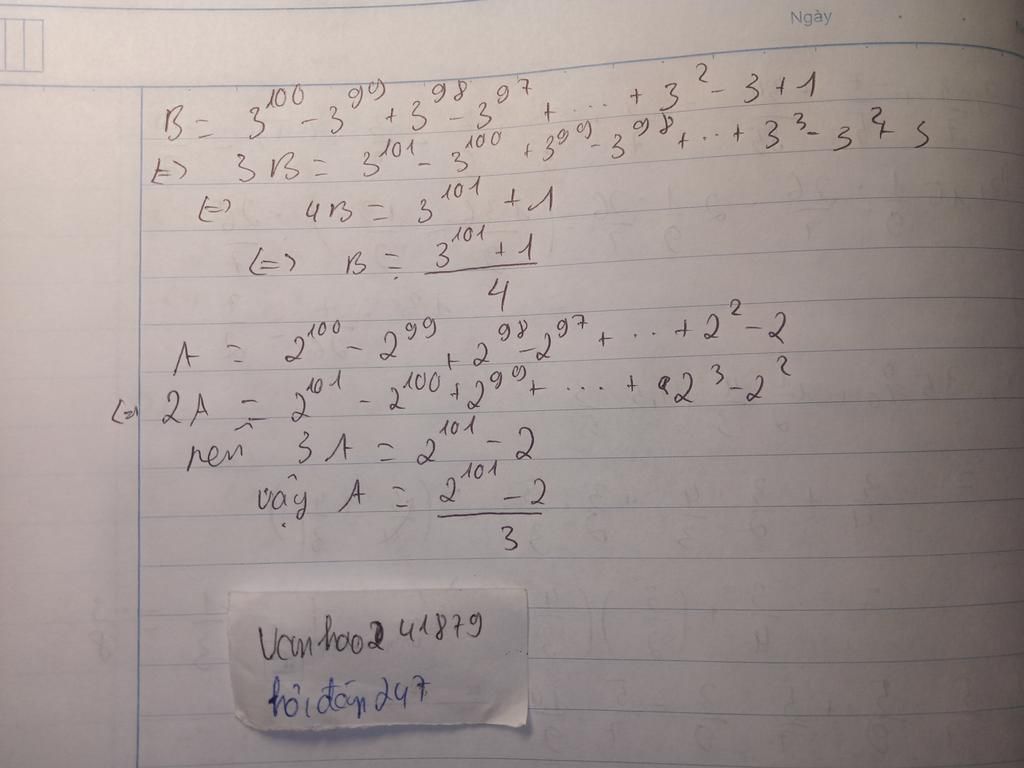 Ngày
B = 3^100 - 3^99 + 3^98 - 3^97 + ... + 3^2 - 3 + 1
(=) 3B = 3^101 - 3^100 + 3^99 - 3^98 + .. + 3^3 - 3^2 + 3
(=) 4B = 3^101 + 1
(=) B = (3^101 + 1)/4
A = 2^100 - 2^99 + 2^98 - 2^97 + ... + 2^2 - 2
(=) 2A = 2^101 - 2^100 + 2^99 + .... + 2^3 - 2^2
nên 3A = 2^101 - 2
vậy A = (2^101 - 2)/3
Vanhao2 41879
hỏi đáp 247